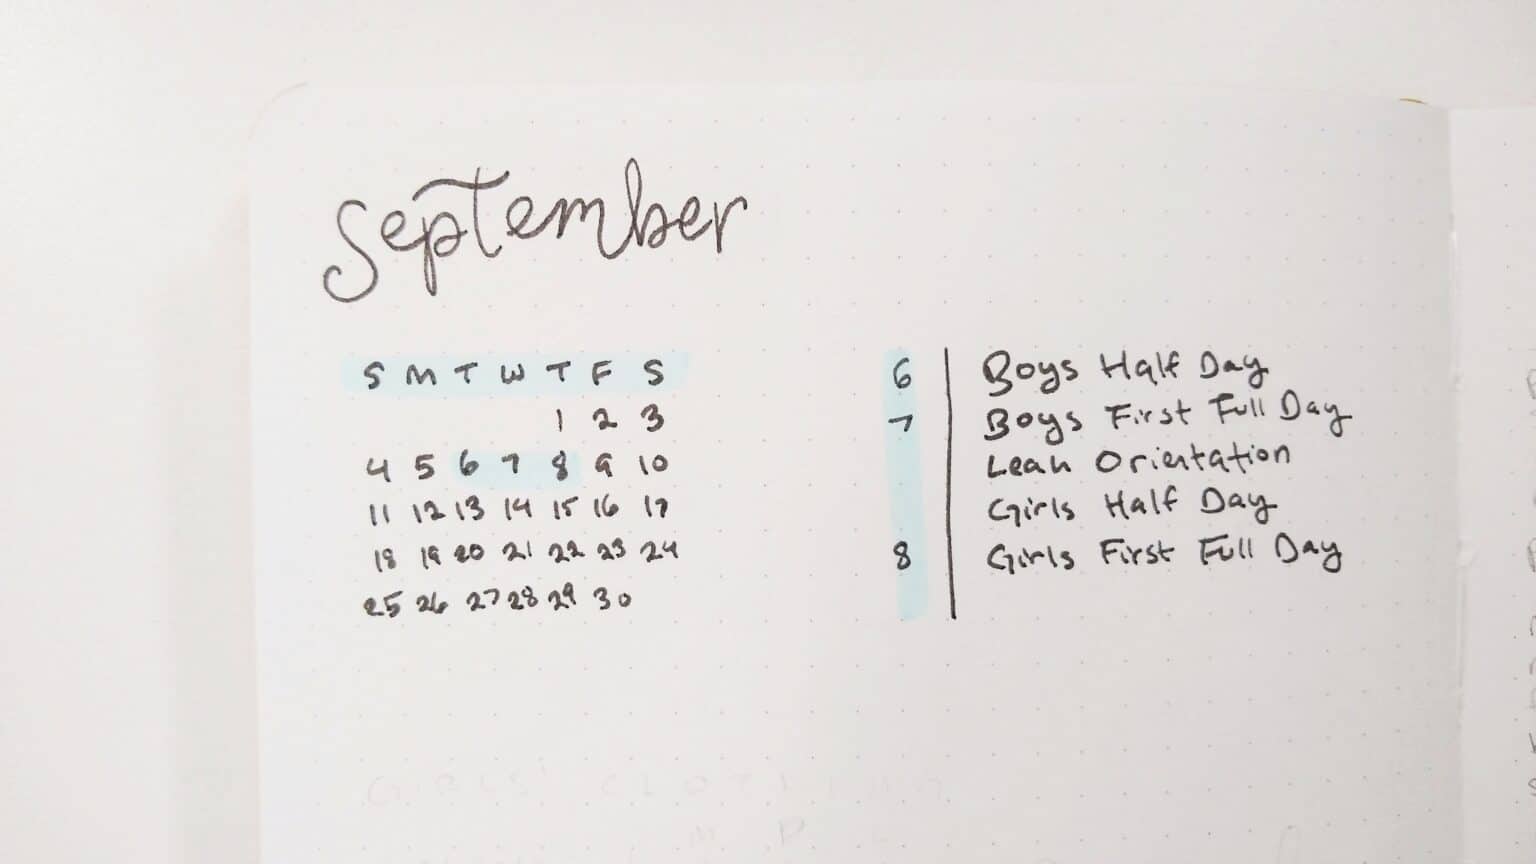 September
S M T W T F S
1 2 3
4 5 6 7 8 9 10
11 12 13 14 15 16 17
18 19 20 21 22 23 24
25 26 27 28 29 30
6 Boys Half Day
7 Boys First Full Day
Leah Orientation
Girls Half Day
8 Girls First Full Day
GIRLS' CLOTHING